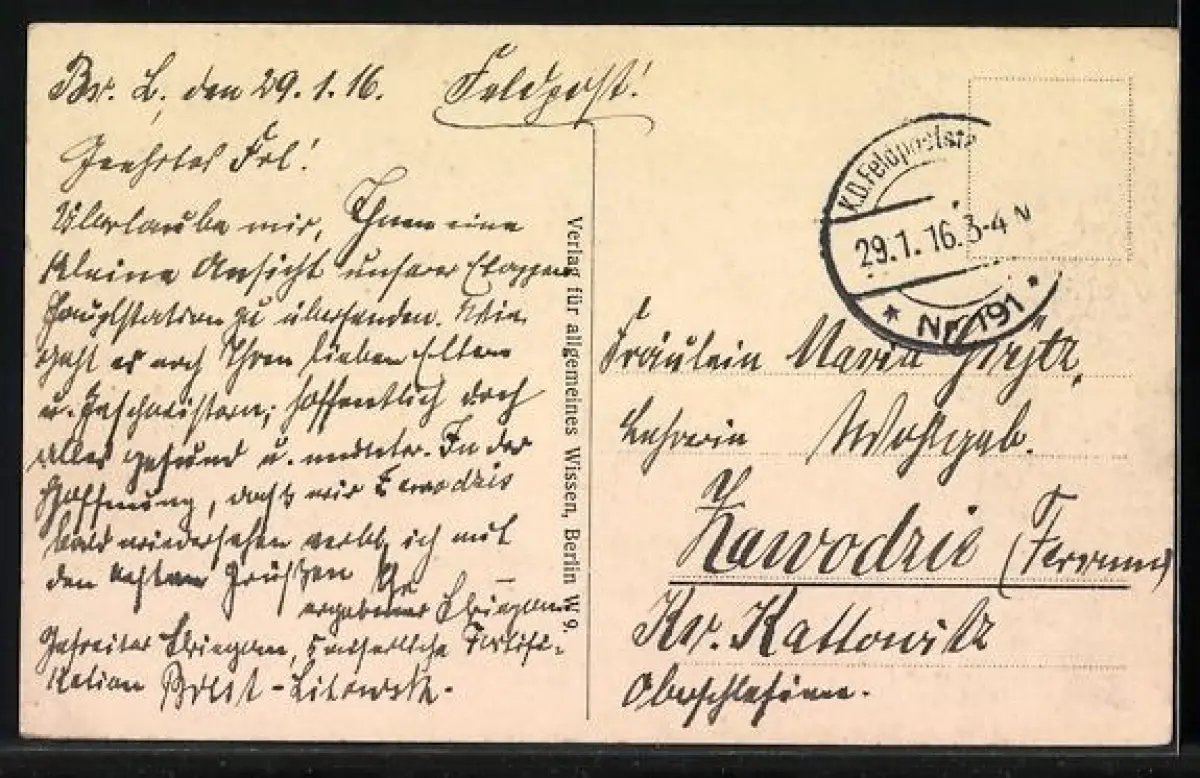 Br. L, den 29.1.16.
Feldpost!
Geehrtes Frl!
Erlaube mir, Ihnen eine
kleine Ansicht unserer Etappen
Hauptstation zu übersenden. Wie
geht es noch Ihren lieben Eltern
u. Geschwistern, hoffentlich doch
alles gesund u. munter. In der
Hoffnung, daß wir Zawodzie
bald wiedersehen verbl. ich mit
den besten Grüßen Ihr
ergebener
Gefreiter Kaiserliche Fortifi-
kation Brest-Litowsk.
Verlag für allgemeines Wissen, Berlin W 9.
K.D. Feldpoststa
29.1.16. 3-4 N
* Nr. 191 *
Fräulein Maria
Lehrerin Wohlgeb.
Zawodzie
Kr. Kattowitz
Oberschlesien.